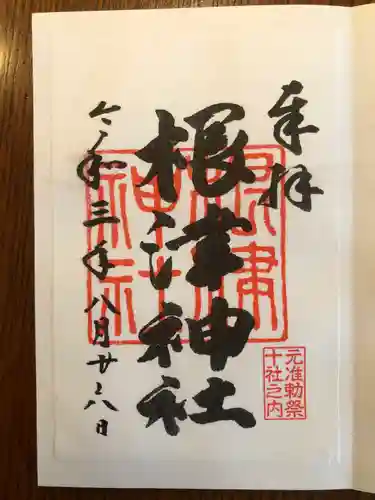 奉拝
根津神社
令和三年八月廿八日
元准勅祭
十社之内